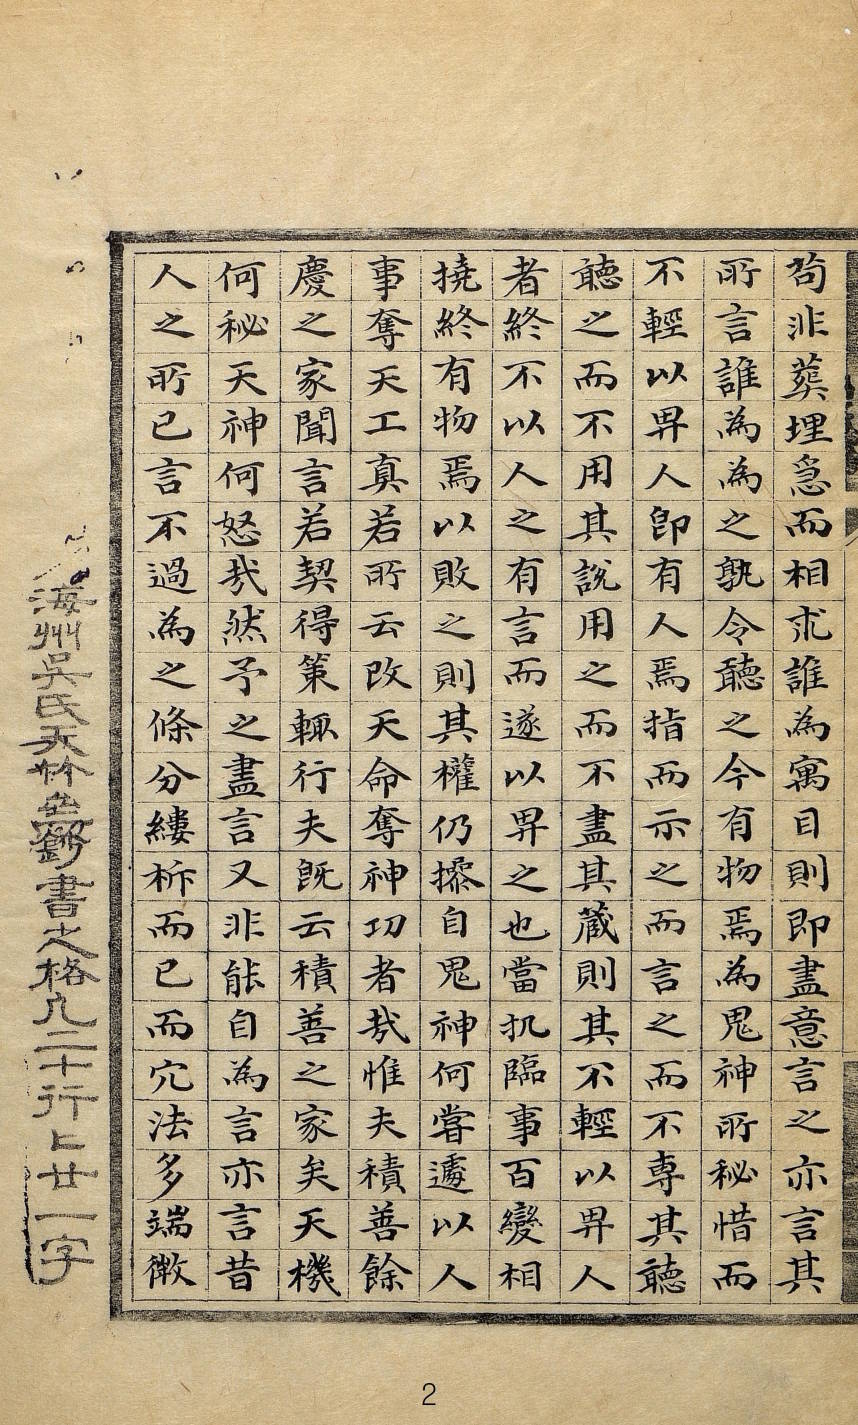 苟非葬埋急而相求誰為寓目則即盡意言之亦言其
所言誰為為之孰令聽之今有物焉為鬼神所秘惜而
不輕以畀人卽有人焉指而示之而言之而不専其聽
聽之而不用其說用之而不盡其蔵則其不輕以畀人
者終不以人之有言而遂以畀之也當机臨事百變相
撓終有物焉以敗之則其權仍操自鬼神何嘗遽以人
事奪天工真若所云改天命奪神功者㢤惟夫積善餘
慶之家聞言若契得策輙行夫旣云積善之家矣天機
何秘天神何怒㢤然予之盡言又非能自為言亦言昔
人之所已言不過為之條分縷柝而已而穴法多端微
海州吳氏天林鈔書之格凡二十行〻廿一字
2